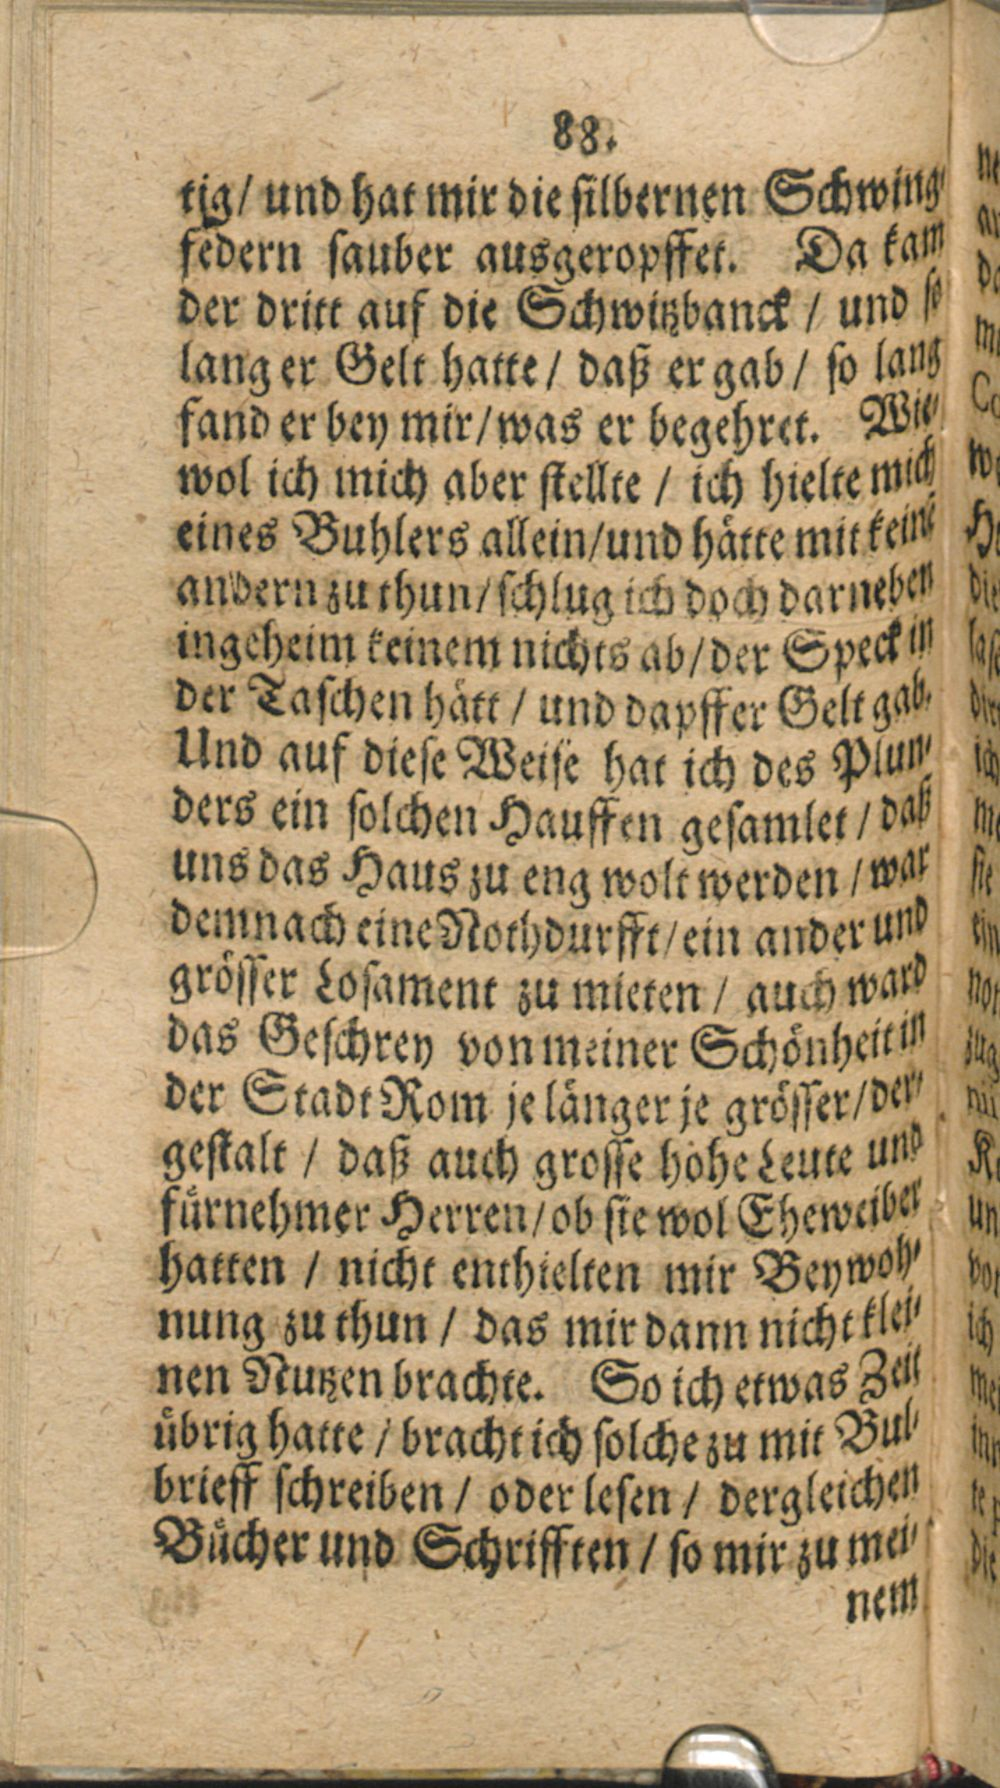 88.
tig/ und hat mir die silbernen Schwing-
federn sauber ausgeropffet. Da kam
der dritt auf die Schwitzbanck / und so
lang er Gelt hatte / daß er gab / so lang
fand er bey mir / was er begehret. Wie-
wol ich mich aber stellte / ich hielte mich
eines Buhlers allein/und hätte mit keinē
andern zu thun / schlug ich doch darneben
ingeheim keinem nichts ab / der Speck in
der Taschen hätt / und dapffer Gelt gab.
Und auf diese Weise hat ich des Plun-
ders ein solchen Hauffen gesamlet / daß
uns das Haus zu eng wolt werden / war
demnach eine Nothdurfft / ein ander und
grösser Losament zu mieten / auch ward
das Geschrey von meiner Schönheit in
der Stadt Rom je länger je grösser / der-
gestalt / daß auch grosse hohe Leute und
fürnehmer Herren / ob sie wol Eheweiber
hatten / nicht enthielten mir Beywoh-
nung zu thun / das mir dann nicht klei-
nen Nutzen brachte. So ich etwas Zeit
übrig hatte / bracht ich solche zu mit Bul-
brieff schreiben / oder lesen / dergleichen
Bücher und Schrifften / so mir zu mei-
nem